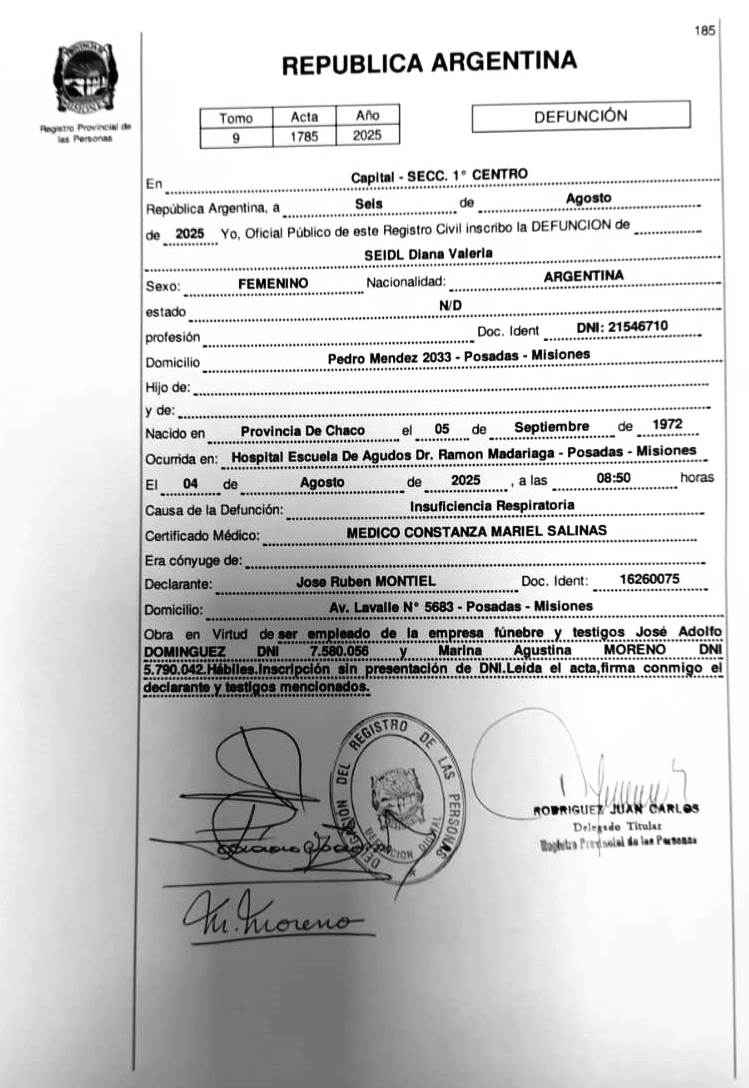 185
Registro Provincial de
las Personas
REPUBLICA ARGENTINA
Tomo Acta Año
9 1785 2025
DEFUNCIÓN
En Capital - SECC. 1° CENTRO
República Argentina, a Seis de Agosto
de 2025 Yo, Oficial Público de este Registro Civil inscribo la DEFUNCION de
SEIDL Diana Valeria
Sexo: FEMENINO Nacionalidad: ARGENTINA
estado N/D
profesión Doc. Ident DNI: 21546710
Domicilio Pedro Mendez 2033 - Posadas - Misiones
Hijo de:
y de:
Nacido en Provincia De Chaco el 05 de Septiembre de 1972
Ocurrida en: Hospital Escuela De Agudos Dr. Ramon Madariaga - Posadas - Misiones
El 04 de Agosto de 2025 , a las 08:50 horas
Causa de la Defunción: Insuficiencia Respiratoria
Certificado Médico: MEDICO CONSTANZA MARIEL SALINAS
Era cónyuge de:
Declarante: Jose Ruben MONTIEL Doc. Ident: 16260075
Domicilio: Av. Lavalle N° 5683 - Posadas - Misiones
Obra en Virtud de ser empleado de la empresa fúnebre y testigos José Adolfo
DOMINGUEZ DNI 7.580.056 y Marina Agustina MORENO DNI
5.790.042.Hábiles.Inscripción sin presentación de DNI.Leída el acta,firma conmigo el
declarante y testigos mencionados.
DELEGACION DEL REGISTRO DE LAS PERSONAS
RODRIGUEZ JUAN CARLOS
Delegado Titular
Registro Provincial de las Personas
M. Moreno